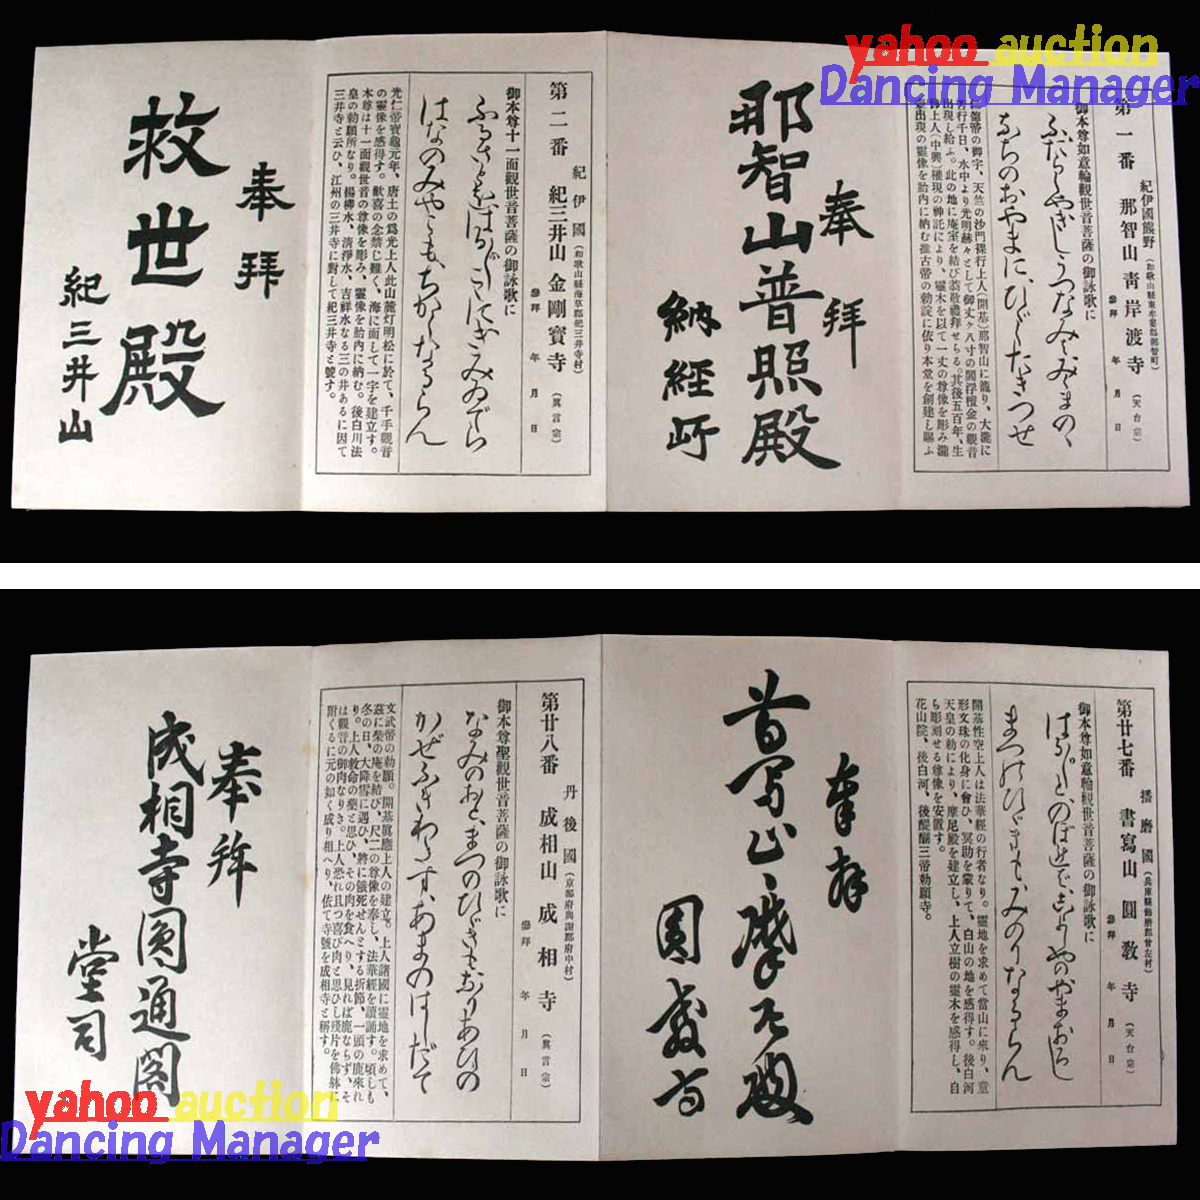 yahoo auction
Dancing Manager
第一番
紀伊國熊野
那智山 靑岸渡寺
參拜 年 月 日
(天台宗)
御本尊如意輪觀世音菩薩の御詠歌に
奉拜
那智山普照殿
納經所
第二番
紀伊國
(和歌山縣海草郡紀三井寺村)
紀三井山 金剛寶寺
參拜 年 月 日
(眞言宗)
御本尊十一面觀世音菩薩の御詠歌に
ふるさとをはるばるここにきみゐでら
はなのみやこもちかくなるらん
光仁帝寶龜元年、唐土の爲光上人此山麓灯明松に於て、千手觀音
の靈像を感得す。歡喜の念禁じ難く、海に面して一字を建立す。
本尊は十一面觀世音の尊像を彫み、靈像を胎內に納む。後白川法
皇の勅願所なり。楊柳水、淸淨水、吉祥水なる三の井あるに因て
三井寺と云ひ、江州の三井寺に對して紀三井寺と號す。
奉拜
救世殿
紀三井山
第廿七番
播磨國
(兵庫縣飾磨郡曾左村)
書寫山 圓敎寺
參拜 年 月 日
(天台宗)
御本尊如意輪觀世音菩薩の御詠歌に
はるばるとのぼればしよしやのやまおろし
まつのひびきもみのりなるらん
開基性空上人は法華經の行者なり。靈地を求めて當山に來り、童
形文珠の化身に會ひ、冥助を蒙りて、白山の地を感得す。後白河
天皇の勅により、摩尼殿を建立し、上人立樹の靈木を感得し、自
ら彫刻せる尊像を安置す。
花山院、後白河、後醍醐三帝勅願寺。
奉拜
書寫山摩尼殿
圓敎寺
第廿八番
丹後國
(京都府與謝郡府中村)
成相山 成相寺
參拜 年 月 日
(眞言宗)
御本尊聖觀世音菩薩の御詠歌に
なみのおとまつのひびきもなりあひの
かぜふきわたすあまのはしだて
文武帝の勅願。開基眞應上人の建立。上人諸國に靈地を求めて、
茲に柴の庵を結び、尺二の尊像を奉し、法華經を讀誦す。頃しも
冬の日、大降雪に遇ひ、將に餓死せんとする折節、一頭の鹿來れ
り。上人救命の藥と思ひ、その肉を食へり、見れば鹿ならず、そ
は觀音の御肉なりき。上人恐れ且つ喜び肉と思ひし殘片を佛躰に
附くるに元の如く成り相へり、依て寺號を成相寺と稱す。
奉拜
成相寺圓通閣
堂司
yahoo auction
Dancing Manager